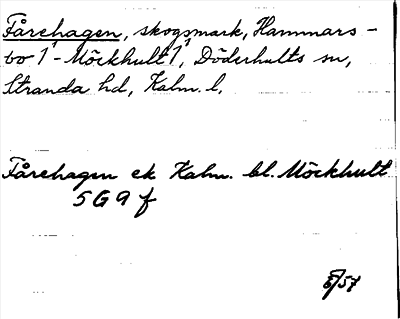 Fårehagen, skogsmark, Hammars-
bo 1¹-Möckhult 1¹, Döderhults sn,
Stranda hd, Kalm. l,
Fårehagen ek Kalm. bl. Möckhult
5G9f